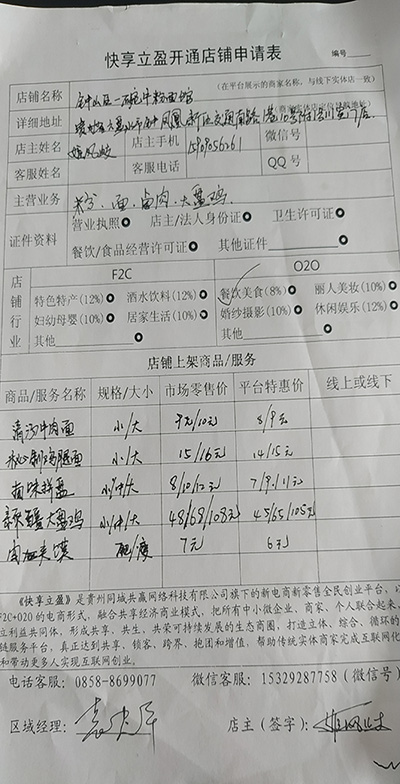 快享立盈开通店铺申请表
编号
店铺名称 钟山区一碗牛粉面馆 (在平台展示的商家名称,与线下实体店一致)
详细地址
店主姓名 店主手机 微信号
客服姓名 客服电话 QQ号
主营业务 粉、面、卤肉、大盘鸡
证件资料 营业执照 店主/法人身份证 卫生许可证
餐饮/食品经营许可证 其他证件
店铺行业 F2C O2O
特色特产(12%) 酒水饮料(12%) 餐饮美食(8%) 丽人美妆(10%)
妇幼母婴(10%) 居家生活(10%) 婚纱摄影(10%) 休闲娱乐(12%)
其他 其他
店铺上架商品/服务
商品/服务名称 规格/大小 市场零售价 平台特惠价 线上或线下
清汤牛肉面 小/大 9元/10元 8/9元
秘制鸡腿面 小/大 15/16元 14/15元
卤味拼盘 小/中/大 8/10/12元 7/9/11元
大盘鸡 小/中/大 48/68/108元 45/65/105元
夹馍 7元 6元
《快享立盈》是贵州同城共赢网络科技有限公司旗下的新电商新零售全民创业平台,以
F2C+O2O的电商形式,融合共享经济商业模式,把所有中小微企业、商家、个人联合起来,
立利益共同体,形成共享、共生、共荣可持续发展的生态商圈,打造立体、综合、循环的
链服务平台,真正达到共享、锁客、跨界、抱团和增值,帮助传统实体商家完成互联网化
和带动更多人实现互联网创业。
电话客服:0858-8699077 微信客服:15329287758(微信号)
区域经理: 店主(签字):